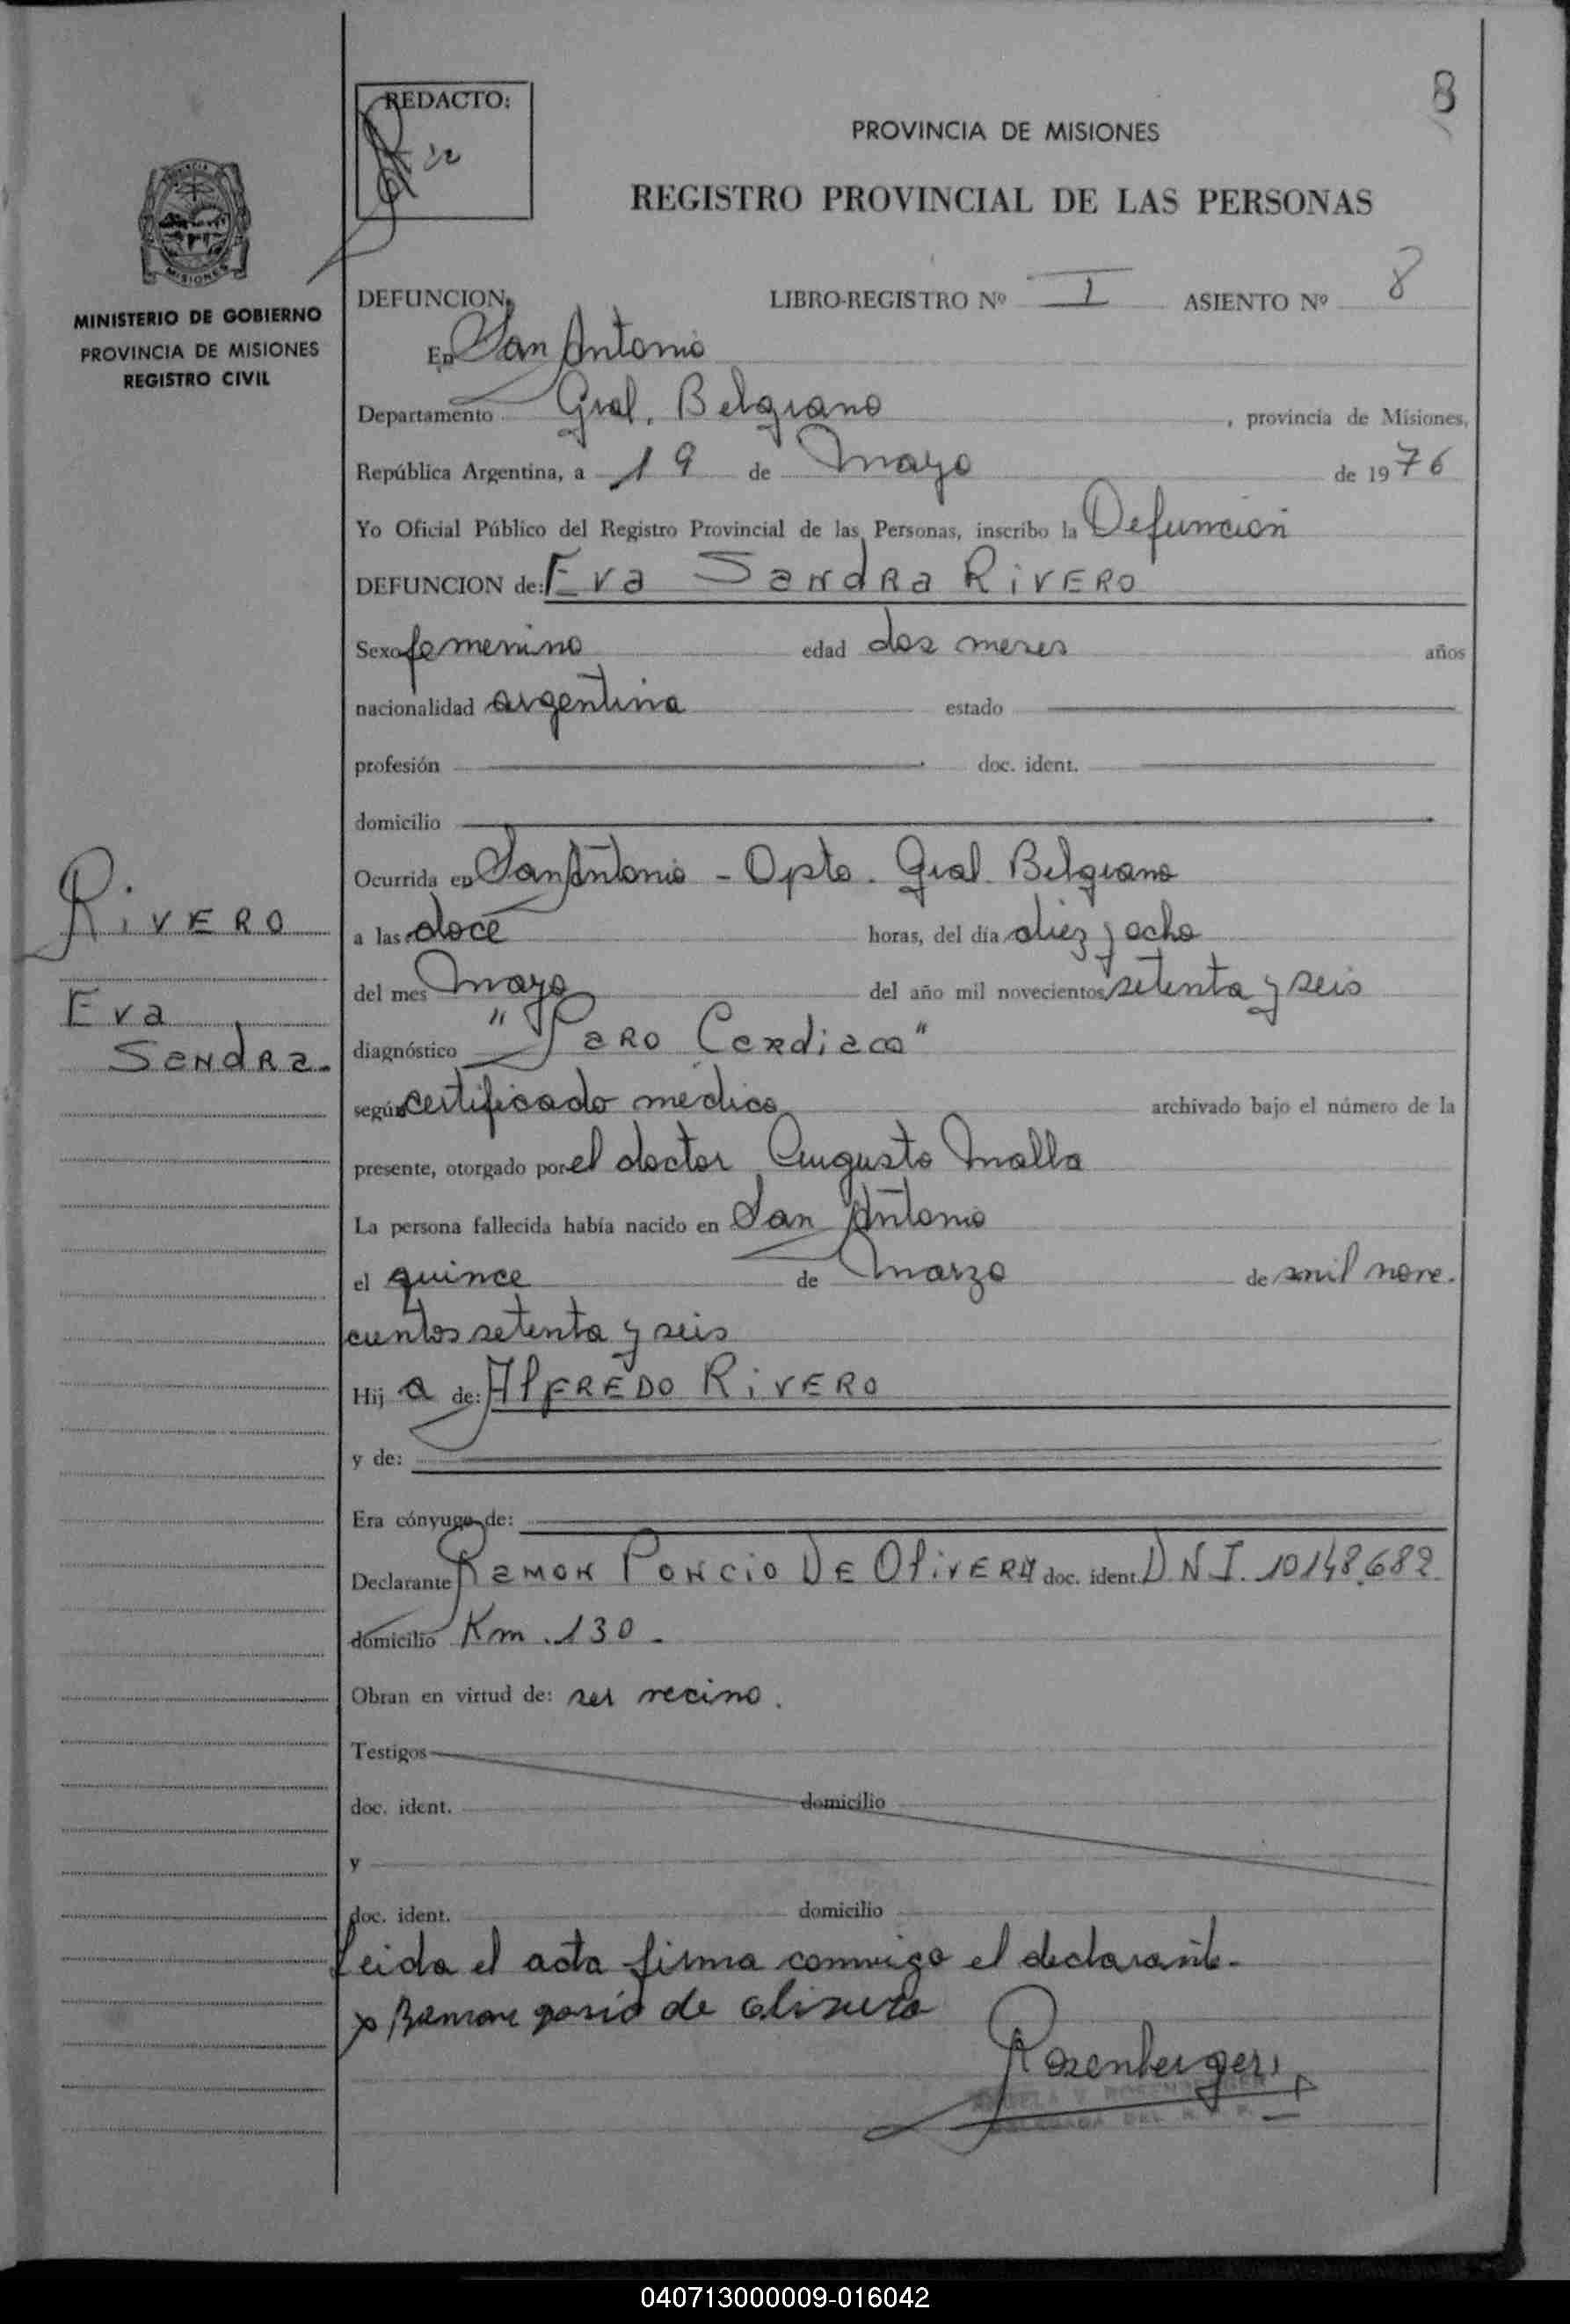 8
REDACTO:
PROVINCIA DE MISIONES
REGISTRO PROVINCIAL DE LAS PERSONAS
PROVINCIA
MISIONES
MINISTERIO DE GOBIERNO
PROVINCIA DE MISIONES
REGISTRO CIVIL
DEFUNCION LIBRO-REGISTRO Nº I ASIENTO Nº 8
En San Antonio
Departamento Gral. Belgrano , provincia de Misiones,
República Argentina, a 19 de Mayo de 1976
Yo Oficial Público del Registro Provincial de las Personas, inscribo la Defuncion
DEFUNCION de: Eva Sandra Rivero
Sexo femenino edad dos meses años
nacionalidad argentina estado
profesión doc. ident.
domicilio
Ocurrida en San Antonio - Dpto. Gral. Belgrano
Rivero
a las doce horas, del día diez y ocho
del mes Mayo del año mil novecientos setenta y seis
Eva
Sandra.
diagnóstico "Paro Cardiaco"
según certificado medico archivado bajo el número de la
presente, otorgado por el doctor Augusto Malla
La persona fallecida había nacido en San Antonio
el quince de Marzo de mil nove.
cientos setenta y seis
Hij a de: Alfredo Rivero
y de:
Era cónyuge de:
Declarante Ramon Poncio De Olivera doc. ident. D.N.I. 10148.682
domicilio Km. 130.
Obran en virtud de: ser vecino.
Testigos
doc. ident. domicilio
y
doc. ident. domicilio
Leida el acta firma conmigo el declarante.
de olivera
Rosenberger
040713000009-016042